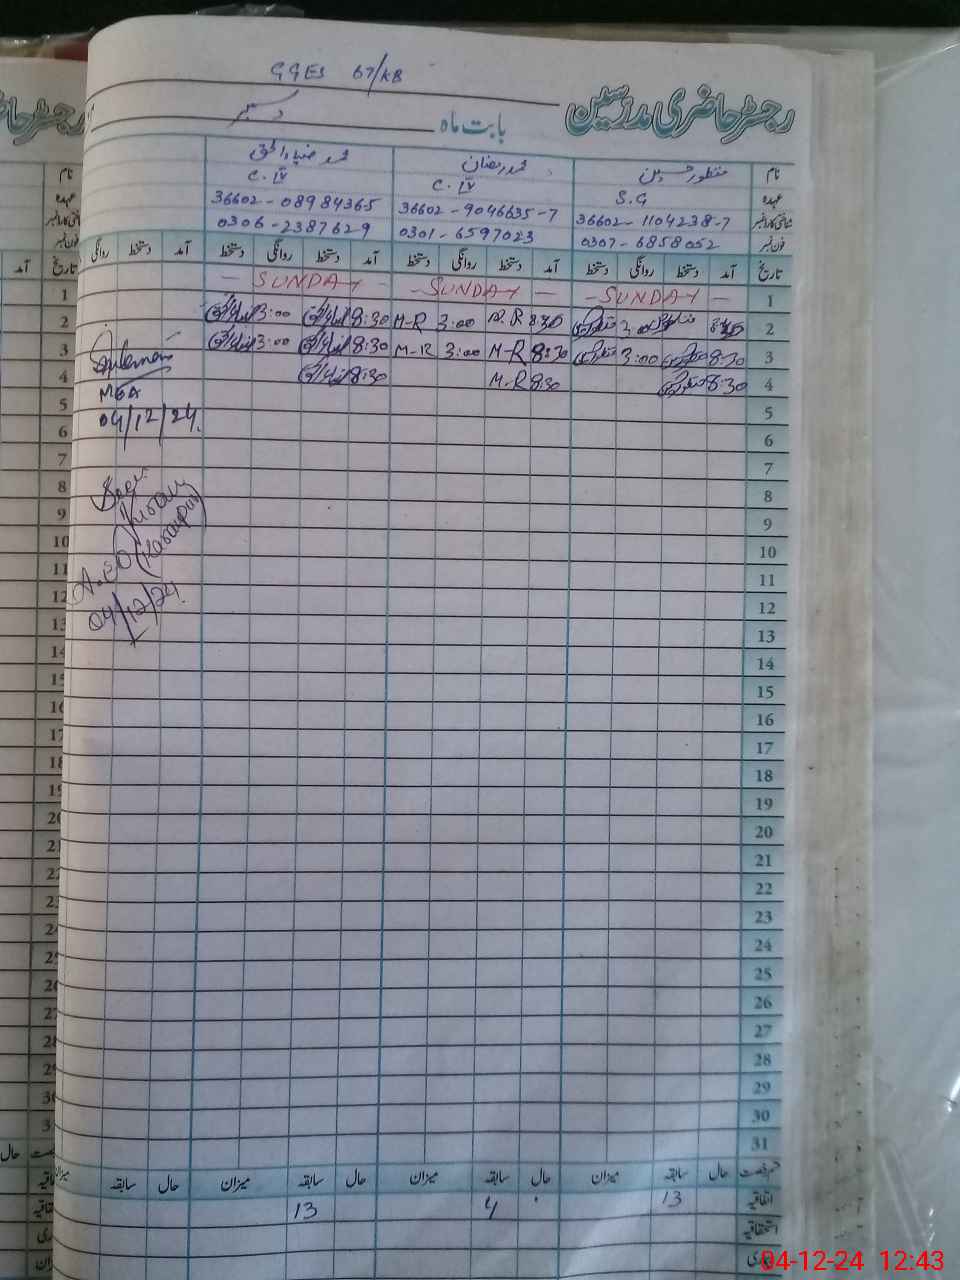 GGES 67/KB
رجسٹر حاضری مدرسین
بابت ماہ دسمبر
نام منظور حسین محمد رمضان محمد ضیاء الحق
عہدہ S.G C.IV C.IV
36602-1104238-7 36602-9046635-7 36602-08984365
فون نمبر 0307-6858052 0301-6597023 0306-2387629
تاریخ آمد دستخط روانگی دستخط آمد دستخط روانگی دستخط آمد دستخط روانگی دستخط آمد دستخط روانگی
1 - SUNDAY - - SUNDAY - - SUNDAY - 1
2 3:00 8:30 M-R 3:00 M.R 8:30 3:00 8:30 2
3 3:00 8:30 M-R 3:00 M-R 8:30 3:00 8:30 3
4 8:30 M-R 8:30 8:30 4
MEA
5 5
04/12/24.
6 6
7 7
8 8
9 9
10 10
11 11
A.EO
12 12
04/12/24.
13 13
14 14
15
16
17
18
19
20
21
22
23
24
25
26
27
28
29
30
31
حال سابقہ میزان حال سابقہ میزان حال سابقہ میزان حال سابقہ
اتفاقیہ 13 4 13
استحقاقیہ
04-12-24 12:43